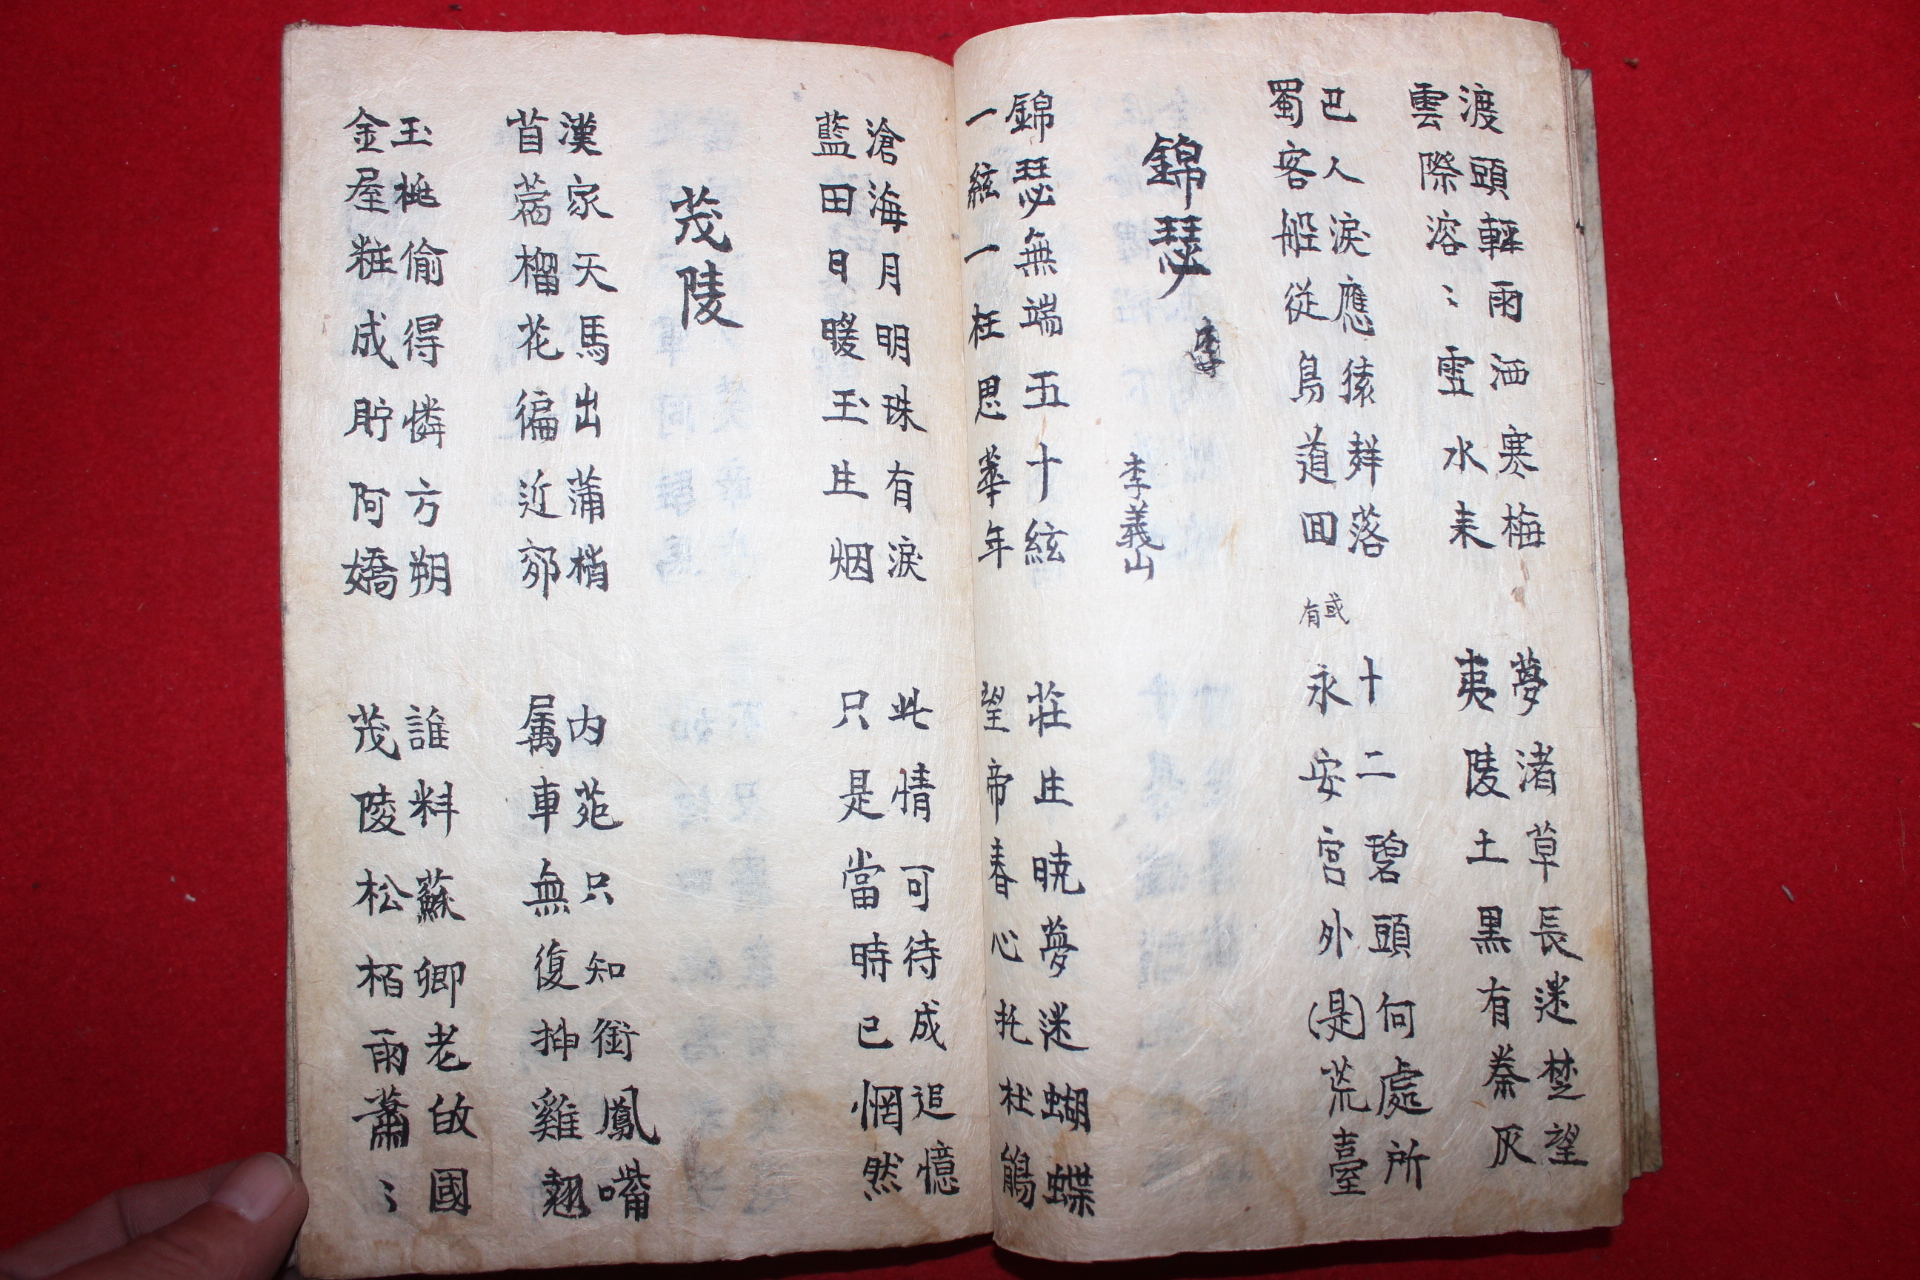 渡頭輕雨洒寒梅
雲際溶〻雪水来
夢渚草長迷楚望
夷陵土黒有秦灰
巴人淚應猿声落
蜀客船従鳥道回
或有
十二碧頭何處所
永安宮外(是)荒臺
錦瑟
李義山
錦瑟無端五十絃
一絃一柱思華年
莊生暁夢迷蝴蝶
望帝春心托杜鵑
滄海月明珠有淚
藍田日暖玉生烟
此情可待成追憶
只是當時已惘然
茂陵
漢家天馬出蒲梢
苜蓿榴花徧近郊
内苑只知銜鳳嘴
属車無復挿雞翹
玉桃偷得憐方朔
金屋粧成貯阿嬌
誰料蘇卿老故國
茂陵松栢雨蕭〻